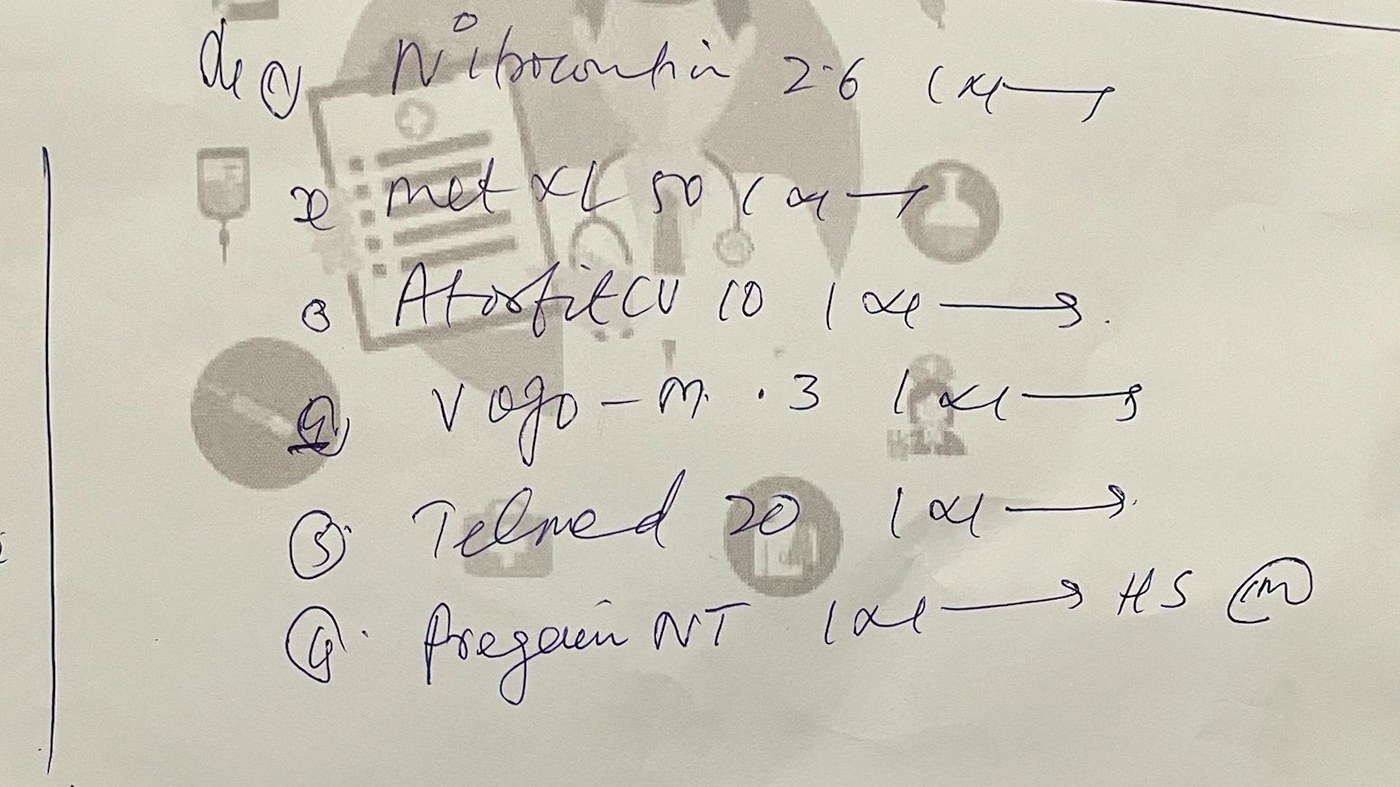 ① Nitrocontin 2.6 1x1 →
② Met XL 50 1x1 →
③ Atorfit CV 10 1x1 →
④ Vogo-M .3 1x1 →
⑤ Telmed 20 1x1 →
Pregain NT 1x1 → HS